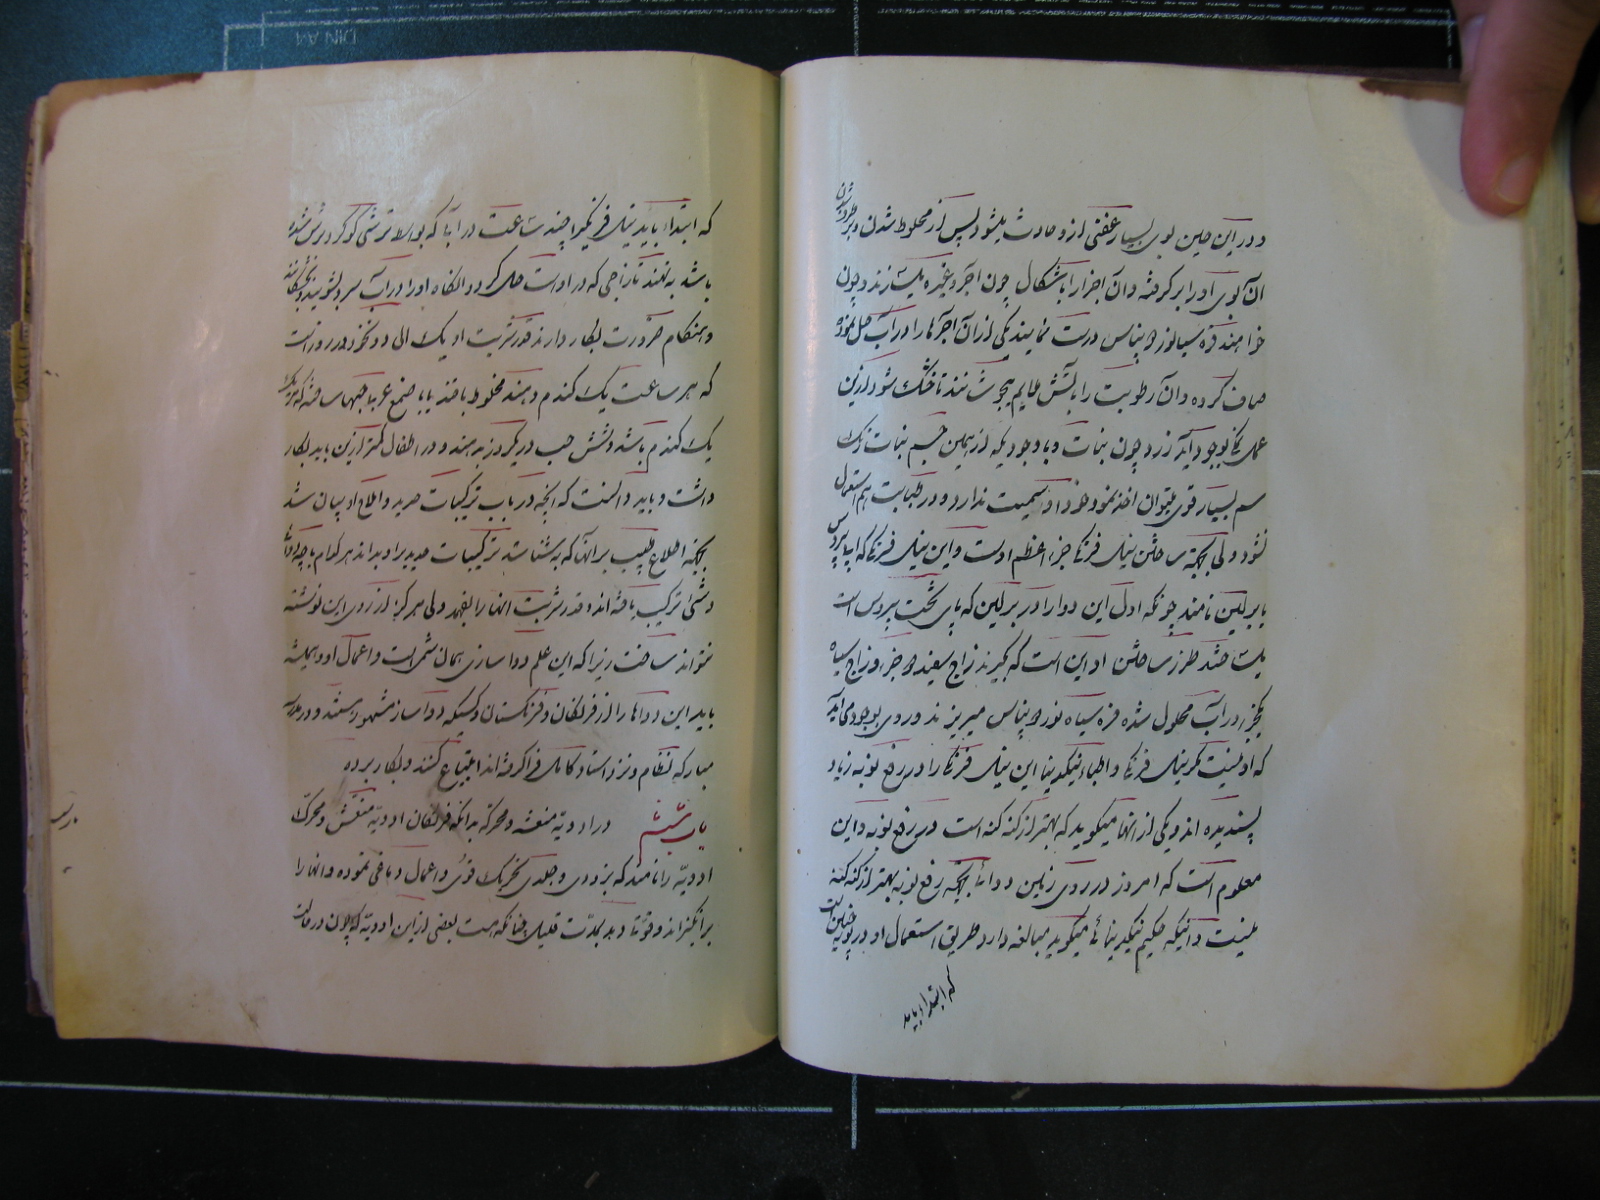 و در این حین بوی بسیار عفنی از او حادث میشود پس از مخلوط شدن و برطرف شدن
آن بوی او را برگرفته و آن اجزا را باشکال چون آجر و غیره میسازند و چون
خواهند فره سیانوره پتاس درست نمایند یکی از آن آجرها را در آب حل نموده
صاف کرده و آن رطوبت را بآتش ملایم بجوشانند تا خشک شود از این
عمل نمک بوجود آید زرد چون نبات و با وجودیکه از همین جسم نبات رنگ
سم بسیار قوی میتوان اخذ نمود خود او سمیت ندارد و در طبابت هم استعمال
نشود ولی بجهة ساختن نیل فرنگی جزء اعظم اوست و این نیل فرنگی که آبی پروس
یا برلین نامند چونکه اول این دوا را در برلین که پای تخت پروس است
ساختند طرز ساختن او این است که گیرند زاج سفید دو جزء و زاج سیاه
یکجزء در آب محلول شده فره سیاه نوره پتاس میریزند دوری بوجود می آید
که او نیست مگر نیل فرنگی و اطباء نیکدنیا این نیل فرنگی را در رفع نوبه زیاد
پسندیده اند و یکی از آنها میگوید که بهتر از کنه کنه است در رفع نوبه و این
معلوم است که امروز در روی زمین دوائی بجهة رفع نوبه بهتر از کنه کنه
نیست و آنیکه حکیم نیکدنیائی میگوید مبالغه دارد طریق استعمال او در نوبه چنین است
که ابتداء باید
که ابتداء باید نیل فرنگی را چند ساعت در آبی که بواسطه ترشی گوگرد ترش شده
باشد بنهند تا زاجی که در اوست حل گردد و آنگاه او را در آب سرد بشویند و بخشکانند
و هنگام ضرورت بکار دارند قدر شربت او یک الی دو نخود در روز است
که هر ساعت یک گندم دهند مخلوط با قند یا با صمغ عربی حبها ساخته که هر یک
یک گندم باشد و شش حب در یکروز بدهند و در اطفال کمتر ازین باید بکار
داشت و باید دانست که آنچه در باب ترکیبات حدید و املاح او بیان شد
بجهة اطلاع طبیب بر آنها که بشناسد ترکیبات حدید را و بداند هر کدام با چه ادات
و شئ ترکیب یافته اند و قدر شربت آنها را بفهمد ولی هرگز از روی این نوشته
نتواند ساخت زیرا که این علم دوا سازی همان شمی است و اعمال او و همیشه
باید این دواها را از فرنگان و فرنگستان و کسیکه دواساز مشهور هستند و در مدرسه
مبارکه نظام و نزد استاد کامل فرا گرفته اند ابتیاع کنند و بکار برده
باب ششم در ادویه منعشه و محرکه بدانکه فرنگان ادویه منعش و محرک
ادویه را نامند که بزودی و جلدی تحریک قوی و اعمال دماغی نموده و آنها را
برانگیزاند و قوتها دهد بمدت قلیل چنانکه هست بعضی از این ادویه که چون در حالت